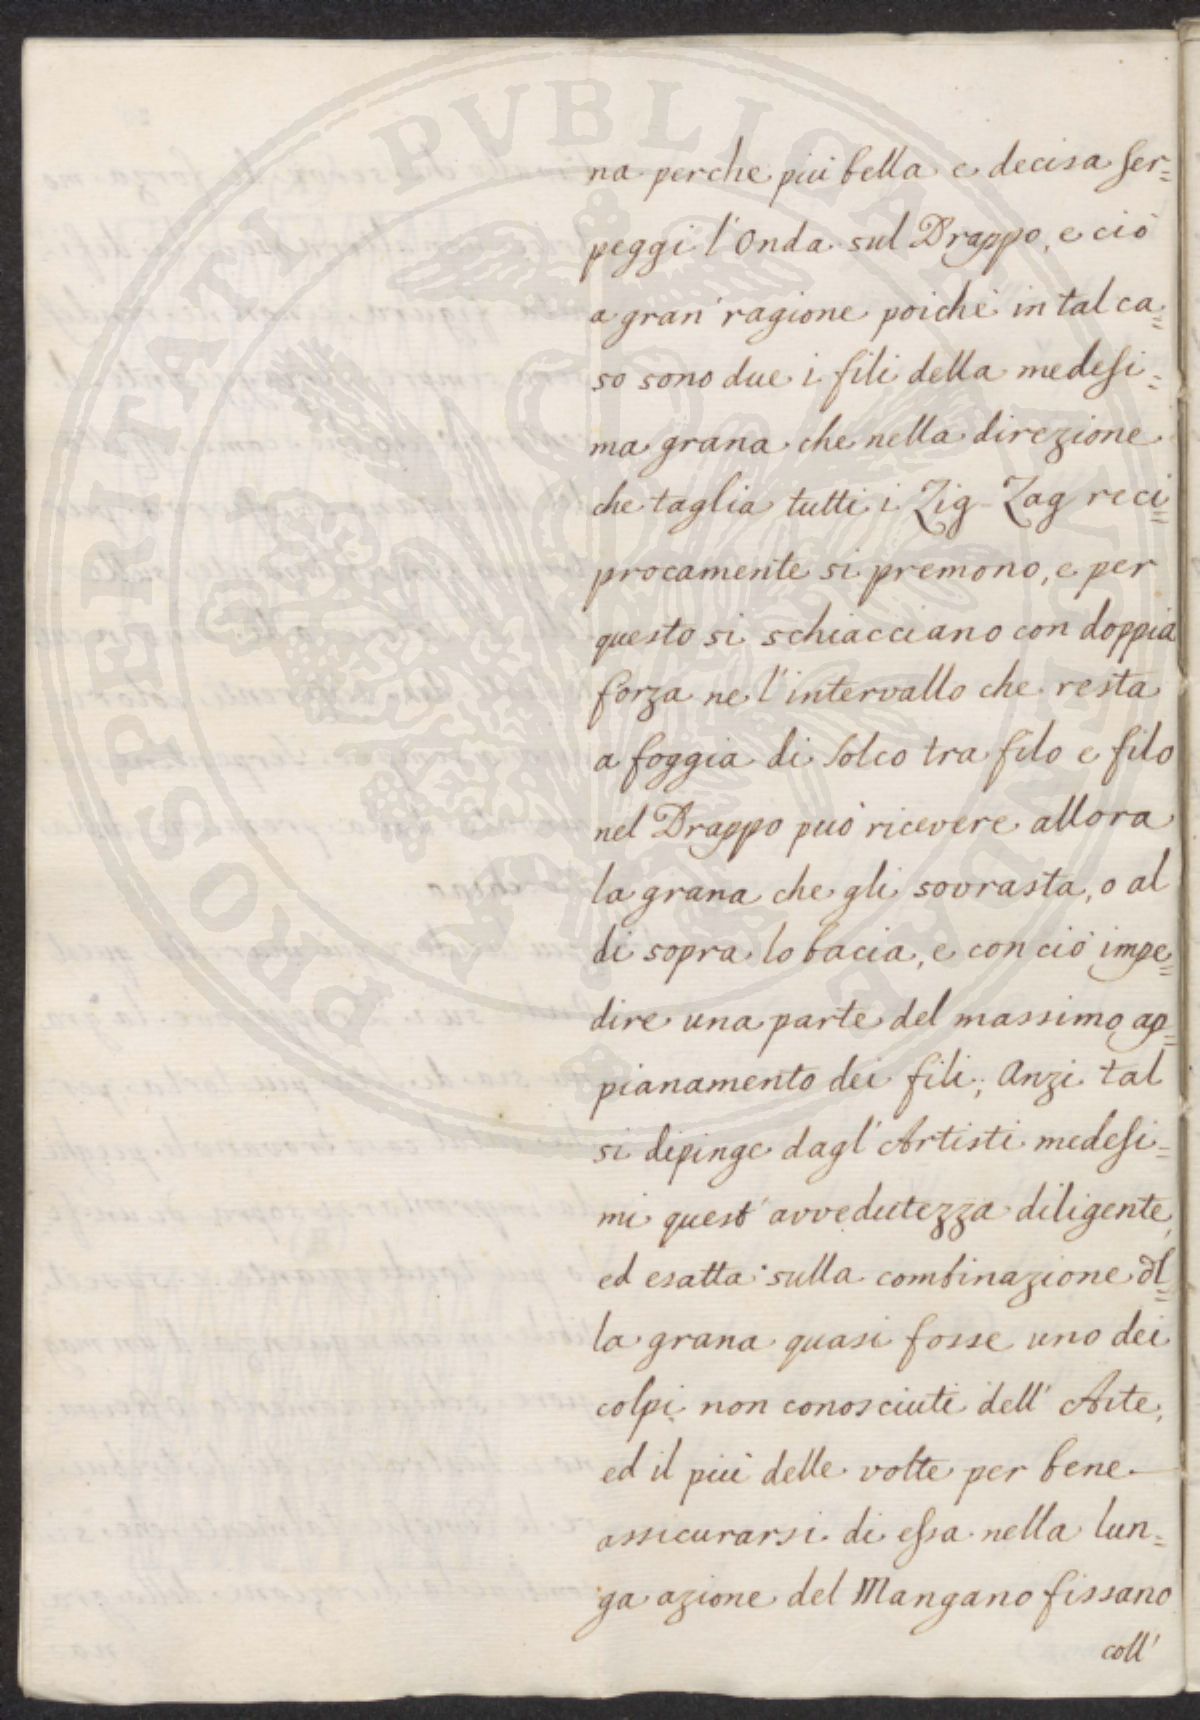 PROSPERITATI PUBLICAE AUGENDAE
na perche piú bella e decisa ser=
peggi l'Onda sul Drappo, e ció
a gran' ragione poiché in tal ca=
so sono due i fili della medesi=
ma grana che nella direzione
che taglia tutti i Zig-Zag reci=
procamente si premono, e per
questo si schiacciano con doppia
forza ne l'intervallo che resta
a foggia di Solco tra filo e filo
nel Drappo può ricevere allora
la grana che gli sovrasta, o al
di sopra lo bacia, e con ció impe=
dire una parte del massimo ap=
pianamento dei fili; Anzi tal
si dipinge dagl' Artisti medesi=
mi quest' avvedutezza diligente,
ed esatta sulla combinazione dl=
la grana quasi fosse uno dei
colpi non conosciuti dell' Arte,
ed il piú delle volte per bene
assicurarsi di essa nella lun=
ga azione del Mangano fissano
coll'